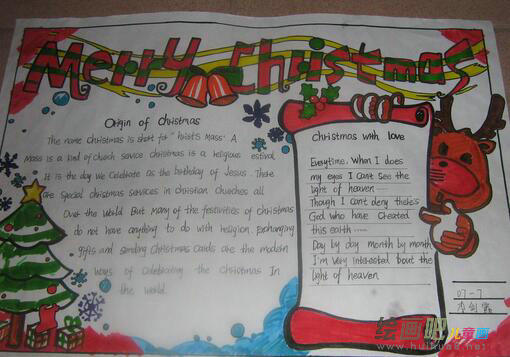 Merry Christmas
Origin of christmas
The name christmas is short for "hrists Mass". A
Mass is a kind of church sevice christmas is a religious estival
It is the day we celebrate as the birthday of Jesus. There
are special christmas services in christian churches all
over the world But many of the festivities of christmas
do not have anything to do with religion. Exphanging
gifts and sending christmas cards are the modern
ways of celebrating the christmas In
the world.
christmas with love
Everytime. When I does
my eyes I can't see the
light of heaven
Though I can't deny there's
God who have cheated
this earth
Day by day month by month
I'm very interested bout the
light of heaven
07-7
绘画吧儿童画
www.huihua8.net